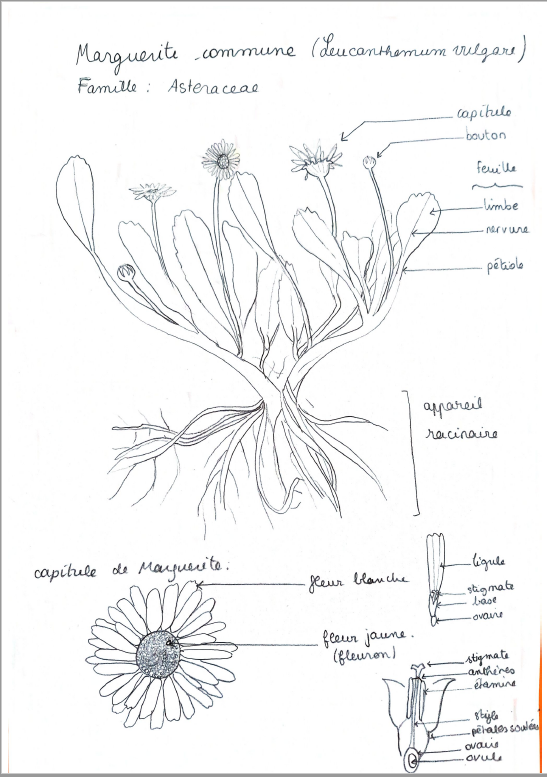 Marguerite commune (Leucanthemum vulgare)
Famille : Asteraceae
capitule
bouton
feuille
limbe
nervure
pétiole
appareil
racinaire
capitule de Marguerite.
fleur blanche
fleur jaune.
(fleuron)
ligule
stigmate
base
ovaire
stigmate
anthères
étamine
style
pétales soudés
ovaire
ovule